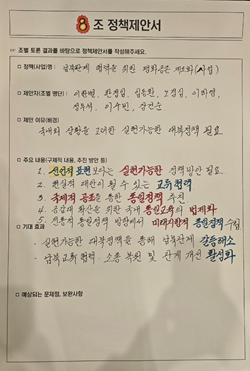 8 조 정책제안서
조별 토론 결과를 바탕으로 정책제안서를 작성해주세요.
□ 정책(사업)명 : 남북관계 협력을 위한 평화통일 제도화(사업)
□ 제안자(조별 명단) :
□ 제안 이유(배경)
국내외 상황을 고려한 실현가능한 대북정책 필요
□ 주요 내용(구체적 내용, 추진 방안 등)
1. 선언적 표현보다는 실현가능한 정책방안 필요.
2. 현실적 대안이 될 수 있는 교류협력
3. 국제적 공조를 통한 통일정책 추진
4. 공감대 확산을 위한 국내 통일교육의 법제화
5. 통일정책 방향에서 미래지향적 통일정책 수립
□ 기대 효과
- 실현가능한 대북정책을 통해 남북관계 갈등해소
- 남북교류협력·소통 복원 및 관계 개선 활성화
□ 예상되는 문제점, 보완사항